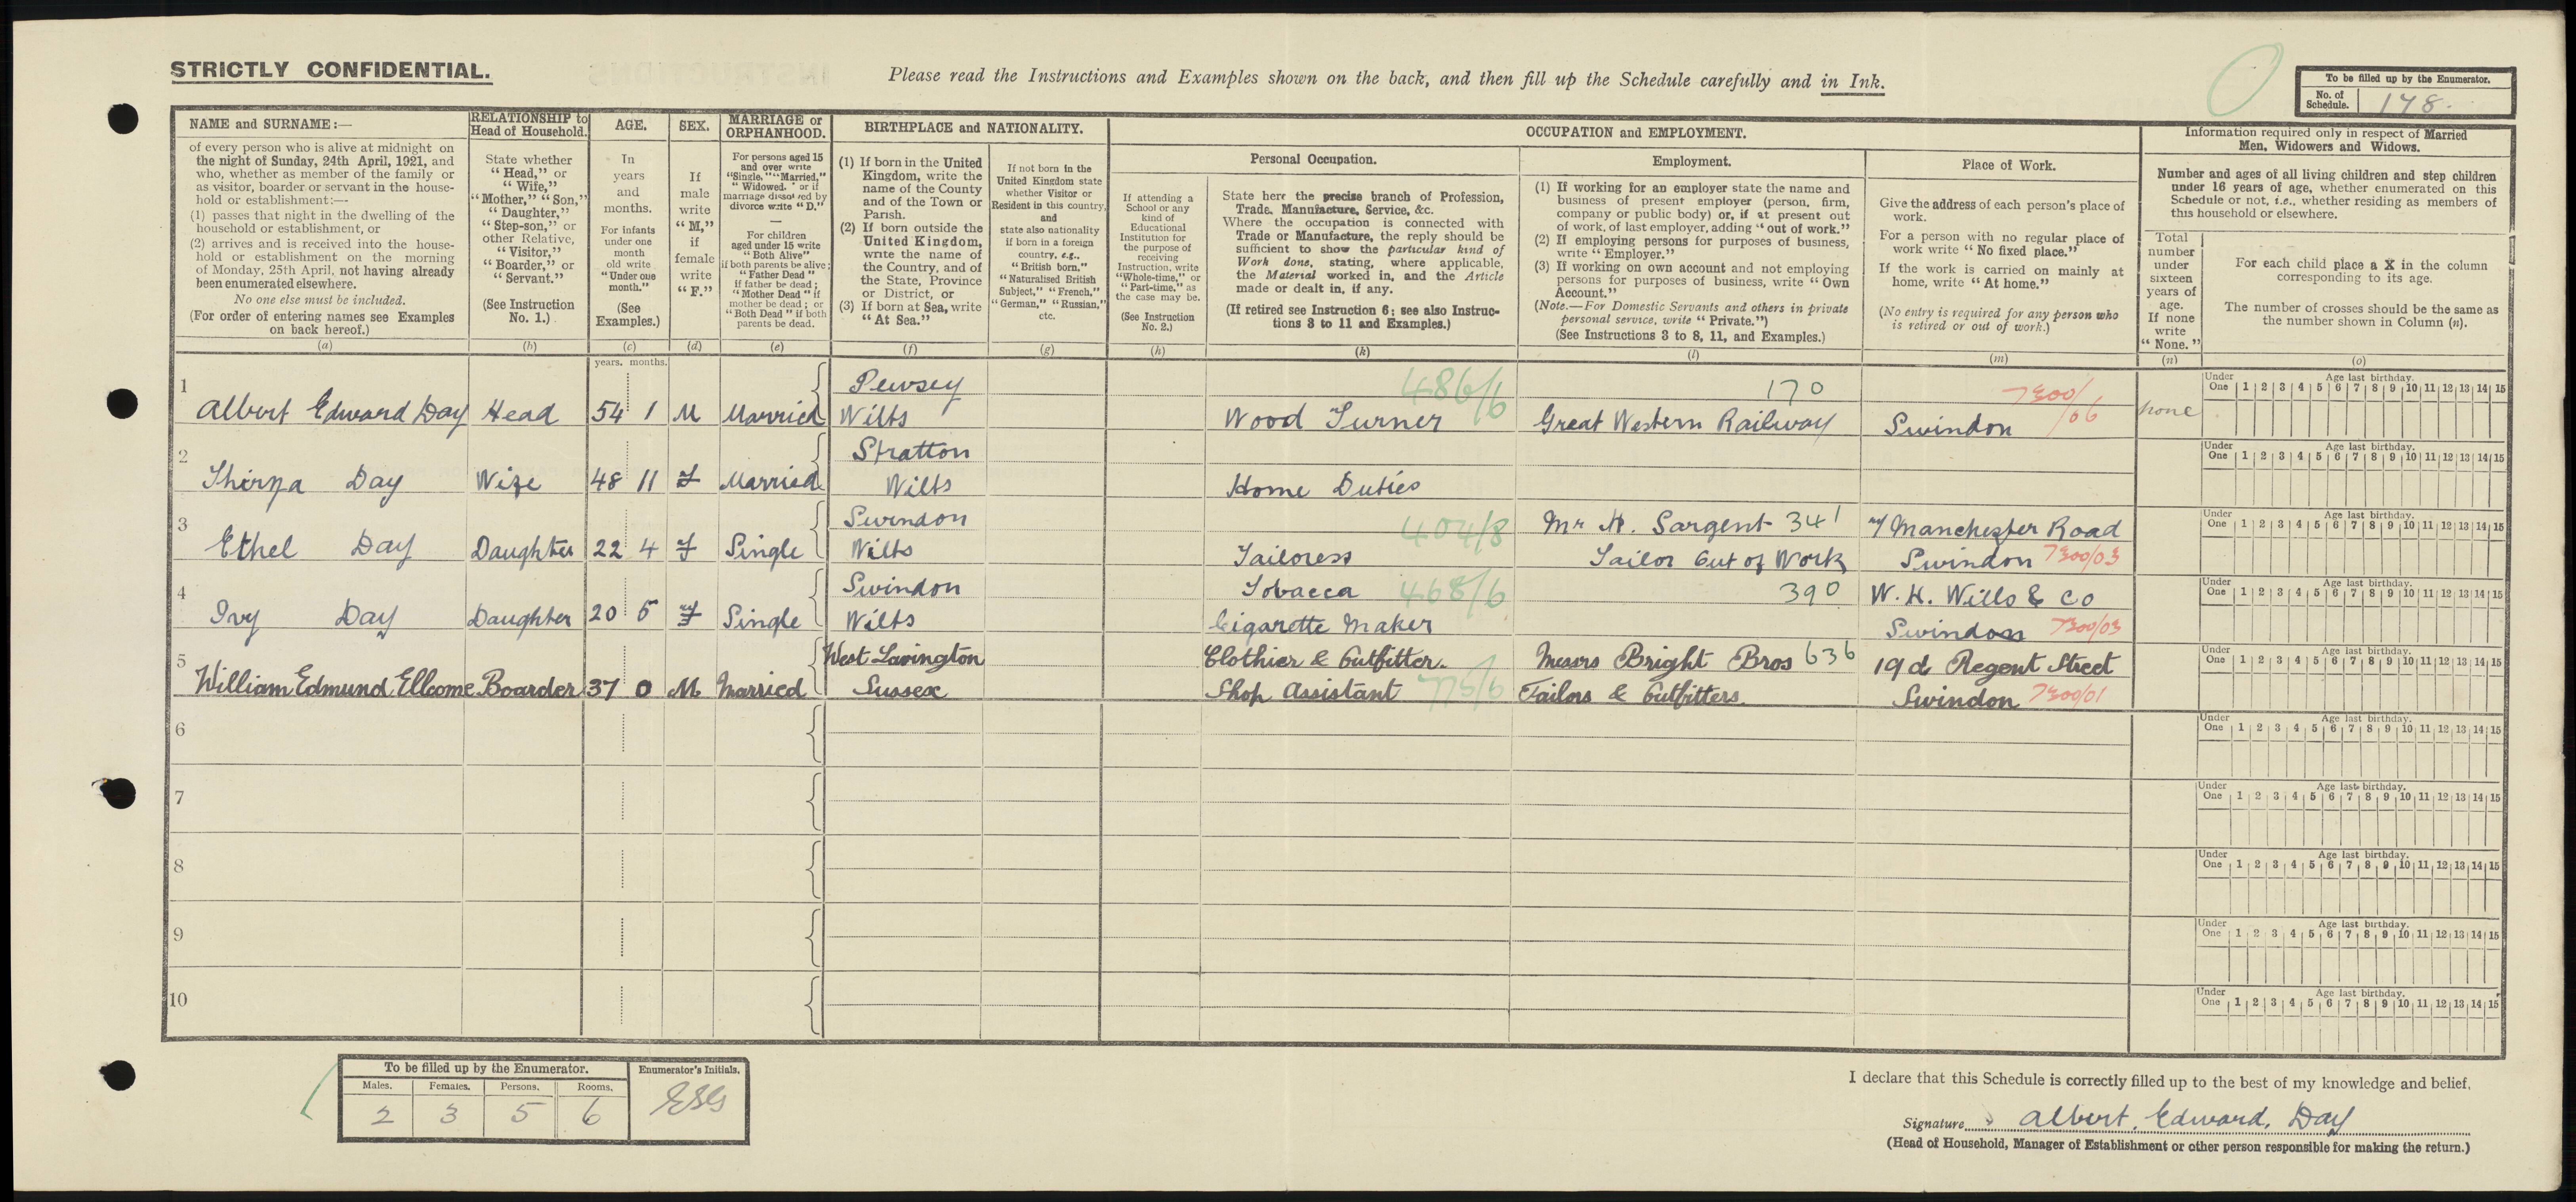 STRICTLY CONFIDENTIAL.
Please read the Instructions and Examples shown on the back, and then fill up the Schedule carefully and in Ink.
To be filled up by the Enumerator.
No. of Schedule. 178.
NAME and SURNAME:—
of every person who is alive at midnight on
the night of Sunday, 24th April, 1921, and
who, whether as member of the family or
as visitor, boarder or servant in the house-
hold or establishment:—
(1) passes that night in the dwelling of the
household or establishment, or
(2) arrives and is received into the house-
hold or establishment on the morning
of Monday, 25th April, not having already
been enumerated elsewhere.
No one else must be included.
(For order of entering names see Examples
on back hereof.)
(a)
RELATIONSHIP to
Head of Household.
State whether
"Head," or
"Wife,"
"Mother," "Son,"
"Daughter,"
"Step-son," or
other Relative,
"Visitor,"
"Boarder," or
"Servant."
(See Instruction
No. 1.)
(b)
AGE.
In
years
and
months.
For infants
under one
month
old write
"Under one
month."
(See
Examples.)
(c)
SEX.
If
male
write
"M,"
if
female
write
"F."
(d)
MARRIAGE or
ORPHANHOOD.
For persons aged 15
and over write
"Single," "Married,"
"Widowed," or if
marriage dissolved by
divorce write "D."
—
For children
aged under 15 write
"Both Alive"
if both parents be alive;
"Father Dead"
if father be dead;
"Mother Dead" if
mother be dead; or
"Both Dead" if both
parents be dead.
(e)
BIRTHPLACE and NATIONALITY.
(1) If born in the United
Kingdom, write the
name of the County
and of the Town or
Parish.
(2) If born outside the
United Kingdom,
write the name of
the Country, and of
the State, Province
or District, or
(3) If born at Sea, write
"At Sea."
(f)
If not born in the
United Kingdom state
whether Visitor or
Resident in this country,
and
state also nationality
if born in a foreign
country, e.g.,
"British born,"
"Naturalised British
Subject," "French,"
"German," "Russian,"
etc.
(g)
OCCUPATION and EMPLOYMENT.
Personal Occupation.
If attending a
School or any
kind of
Educational
Institution for
the purpose of
receiving
Instruction, write
"Whole-time," or
"Part-time," as
the case may be.
(See Instruction
No. 2.)
(h)
State here the precise branch of Profession,
Trade, Manufacture, Service, &c.
Where the occupation is connected with
Trade or Manufacture, the reply should be
sufficient to show the particular kind of
Work done, stating, where applicable,
the Material worked in, and the Article
made or dealt in, if any.
(If retired see Instruction 6; see also Instruc-
tions 3 to 11 and Examples.)
(k)
Employment.
(1) If working for an employer state the name and
business of present employer (person, firm,
company or public body) or, if at present out
of work, of last employer, adding "out of work."
(2) If employing persons for purposes of business,
write "Employer."
(3) If working on own account and not employing
persons for purposes of business, write "Own
Account."
(Note.—For Domestic Servants and others in private
personal service, write "Private.")
(See Instructions 3 to 8, 11, and Examples.)
(l)
Place of Work.
Give the address of each person's place of
work.
For a person with no regular place of
work write "No fixed place."
If the work is carried on mainly at
home, write "At home."
(No entry is required for any person who
is retired or out of work.)
(m)
Information required only in respect of Married
Men, Widowers and Widows.
Number and ages of all living children and step children
under 16 years of age, whether enumerated on this
Schedule or not, i.e., whether residing as members of
this household or elsewhere.
Total
number
under
sixteen
years of
age.
If none
write
"None."
(n)
For each child place a X in the column
corresponding to its age.
The number of crosses should be the same as
the number shown in Column (n).
(o)
years. months.
1 Albert Edward Day Head 54 1 M Married Pewsey Wilts Wood Turner 486/6 Great Western Railway 170 Swindon 7300/06 none
Under One 1 2 3 4 5 6 7 8 9 10 11 12 13 14 15 Age last birthday.
2 Thirza Day Wife 48 11 F Married Stratton Wilts Home Duties
Under One 1 2 3 4 5 6 7 8 9 10 11 12 13 14 15 Age last birthday.
3 Ethel Day Daughter 22 4 F Single Swindon Wilts Tailoress 404/8 Mr H. Sargent 341 Tailor Out of Work Manchester Road Swindon 7300/03
Under One 1 2 3 4 5 6 7 8 9 10 11 12 13 14 15 Age last birthday.
4 Ivy Day Daughter 20 5 F Single Swindon Wilts Tobacca Cigarette Maker 468/6 390 W. H. Wills & Co Swindon 7300/03
Under One 1 2 3 4 5 6 7 8 9 10 11 12 13 14 15 Age last birthday.
5 William Edmund Ellcome Boarder 37 0 M Married West Lavington Sussex Clothier & Outfitter. Shop Assistant 775/6 Messrs Bright Bros 636 Tailors & Outfitters. 19d Regent Street Swindon 7300/01
Under One 1 2 3 4 5 6 7 8 9 10 11 12 13 14 15 Age last birthday.
6
Under One 1 2 3 4 5 6 7 8 9 10 11 12 13 14 15 Age last birthday.
7
Under One 1 2 3 4 5 6 7 8 9 10 11 12 13 14 15 Age last birthday.
8
Under One 1 2 3 4 5 6 7 8 9 10 11 12 13 14 15 Age last birthday.
9
Under One 1 2 3 4 5 6 7 8 9 10 11 12 13 14 15 Age last birthday.
10
Under One 1 2 3 4 5 6 7 8 9 10 11 12 13 14 15 Age last birthday.
To be filled up by the Enumerator.
Enumerator's Initials.
Males. Females. Persons. Rooms.
2 3 5 6
I declare that this Schedule is correctly filled up to the best of my knowledge and belief.
Signature Albert. Edward. Day
(Head of Household, Manager of Establishment or other person responsible for making the return.)